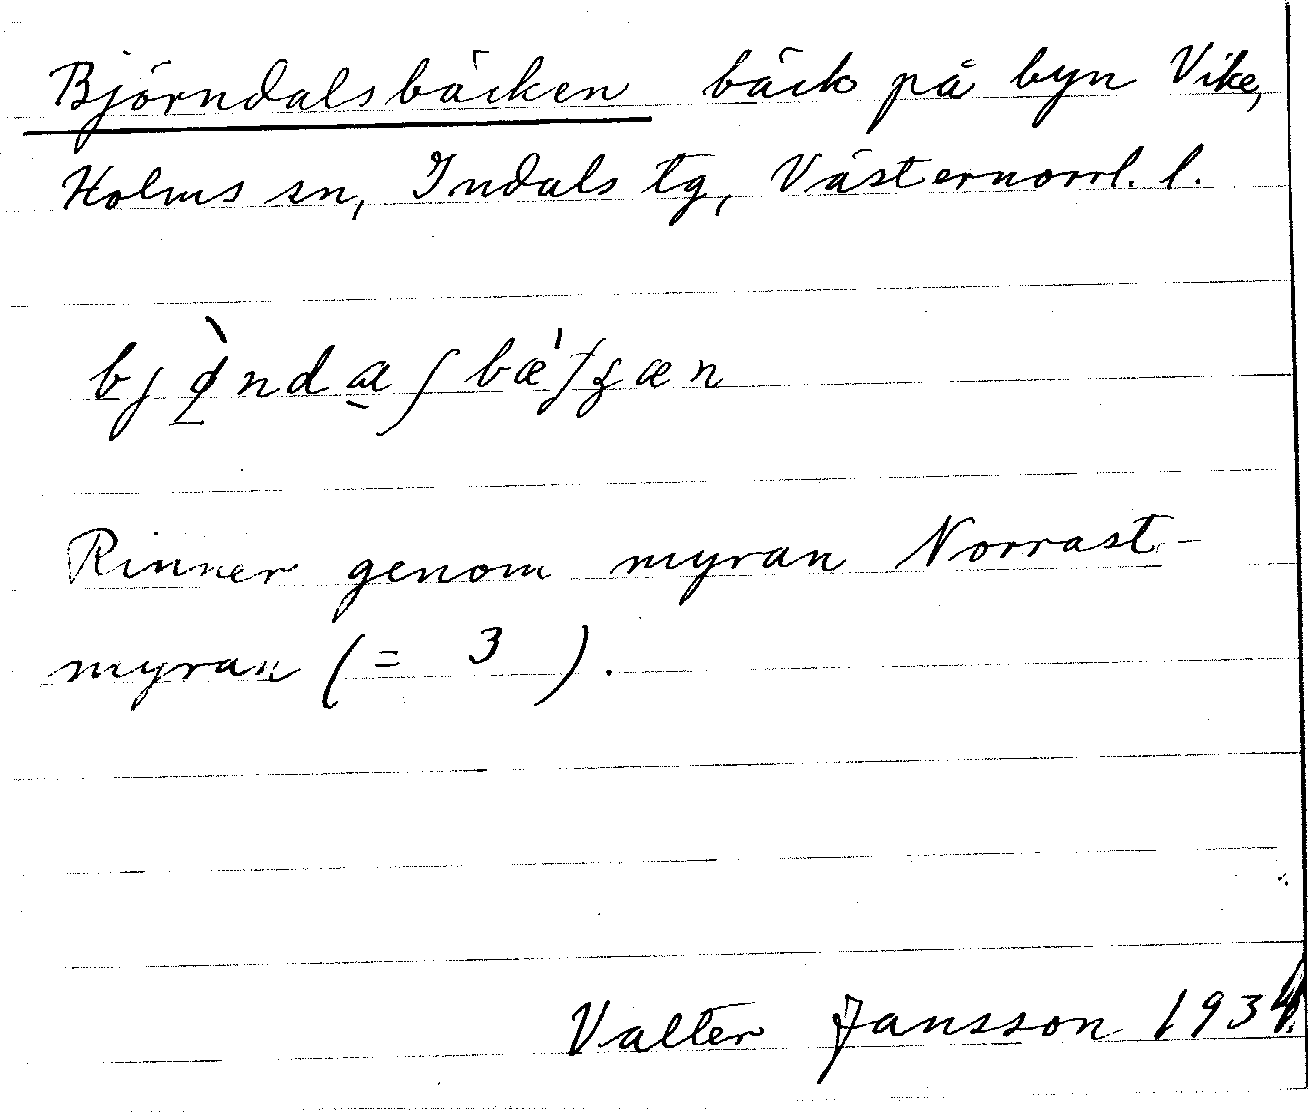 Björndalsbäcken bäck på byn Vike,
Holms sn, Indals tg, Västernorrl. l.
Rinner genom myran Norrast-
myran (= 3 ).
Valter Jansson 1934.